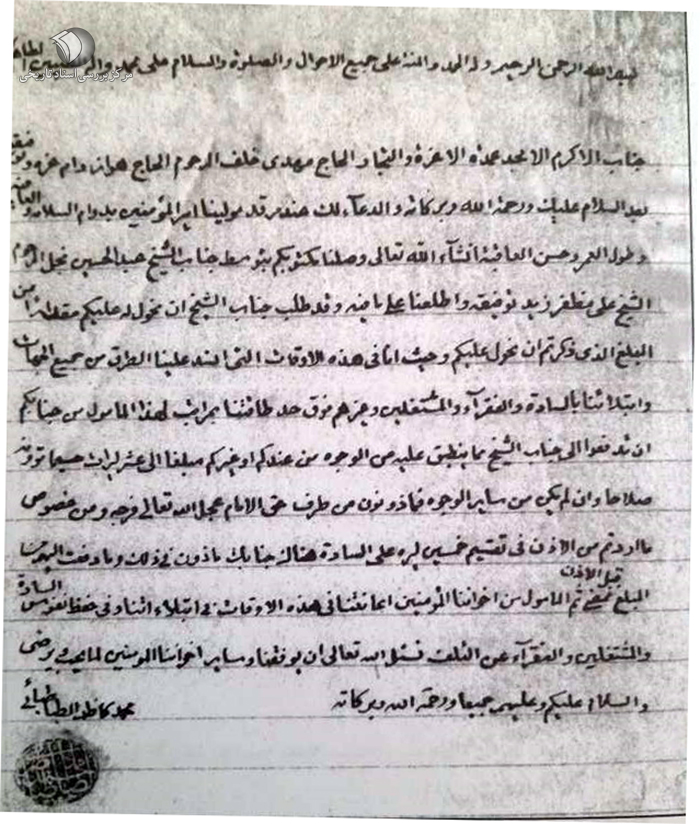 مرکز بررسی اسناد تاریخی
بسم الله الرحمن الرحيم وله الحمد والمنة على جميع الاحوال والصلوة والسلام على محمد وآله الطيبين الطاهرين
جناب الاكرم الامجد عمدة الاعزة والتجار الحاج مهدى خلف المرحوم الحاج هواز دام عزه وتوفيقه
بعد السلام عليك ورحمة الله وبركاته والدعاء لك عند مرقد مولينا امير المؤمنين بدوام السلامة والعافية
وطول العمر وحسن العاقبة انشآء الله تعالى وصلنا مكتوبكم بتوسط جناب الشيخ عبد الحسين نجل المرحوم
الشيخ على مظفر زيد توفيقه واطلعنا على ما فيه وقد طلب جناب الشيخ ان نحول له عليكم مقدارا من
المبلغ الذى ذكرتم ان نحول عليكم وحيث انا فى هذه الاوقات التى انسد علينا الطرق من جميع الجهات
وابتلائنا بالسادة والفقرآء والمشتغلين وغيرهم فوق حد طاقتنا بمراتب لهذا المامول من جنابكم
ان تدفعوا الى جناب الشيخ مما ينطبق عليه من الوجوه من عندكم او غيركم مبلغا الى عشر ليرات حسبما ترونه
صلاحا وان لم يكن من ساير الوجوه فماذونون من طرف حق الامام عجل الله تعالى فرجه ومن خصوص
ما اردتم من الاذن فى تقسيم خمسين ليره على السادة هناك جنابك ماذون فى ذلك وما دفعت اليهم من
المبلغ قبل الاذن ممضى ثم المامول من اخواننا المؤمنين اعانتنا فى هذه الاوقات فى ابتلاءاتنا وفى حفظ نفوس السادة
والمشتغلين والفقرآء عن التلف نسئل الله تعالى ان يوفقنا وساير اخواننا المؤمنين لما يحب ويرضى
والسلام عليكم وعليهم جميعا ورحمة الله وبركاته محمد كاظم الطباطبائي